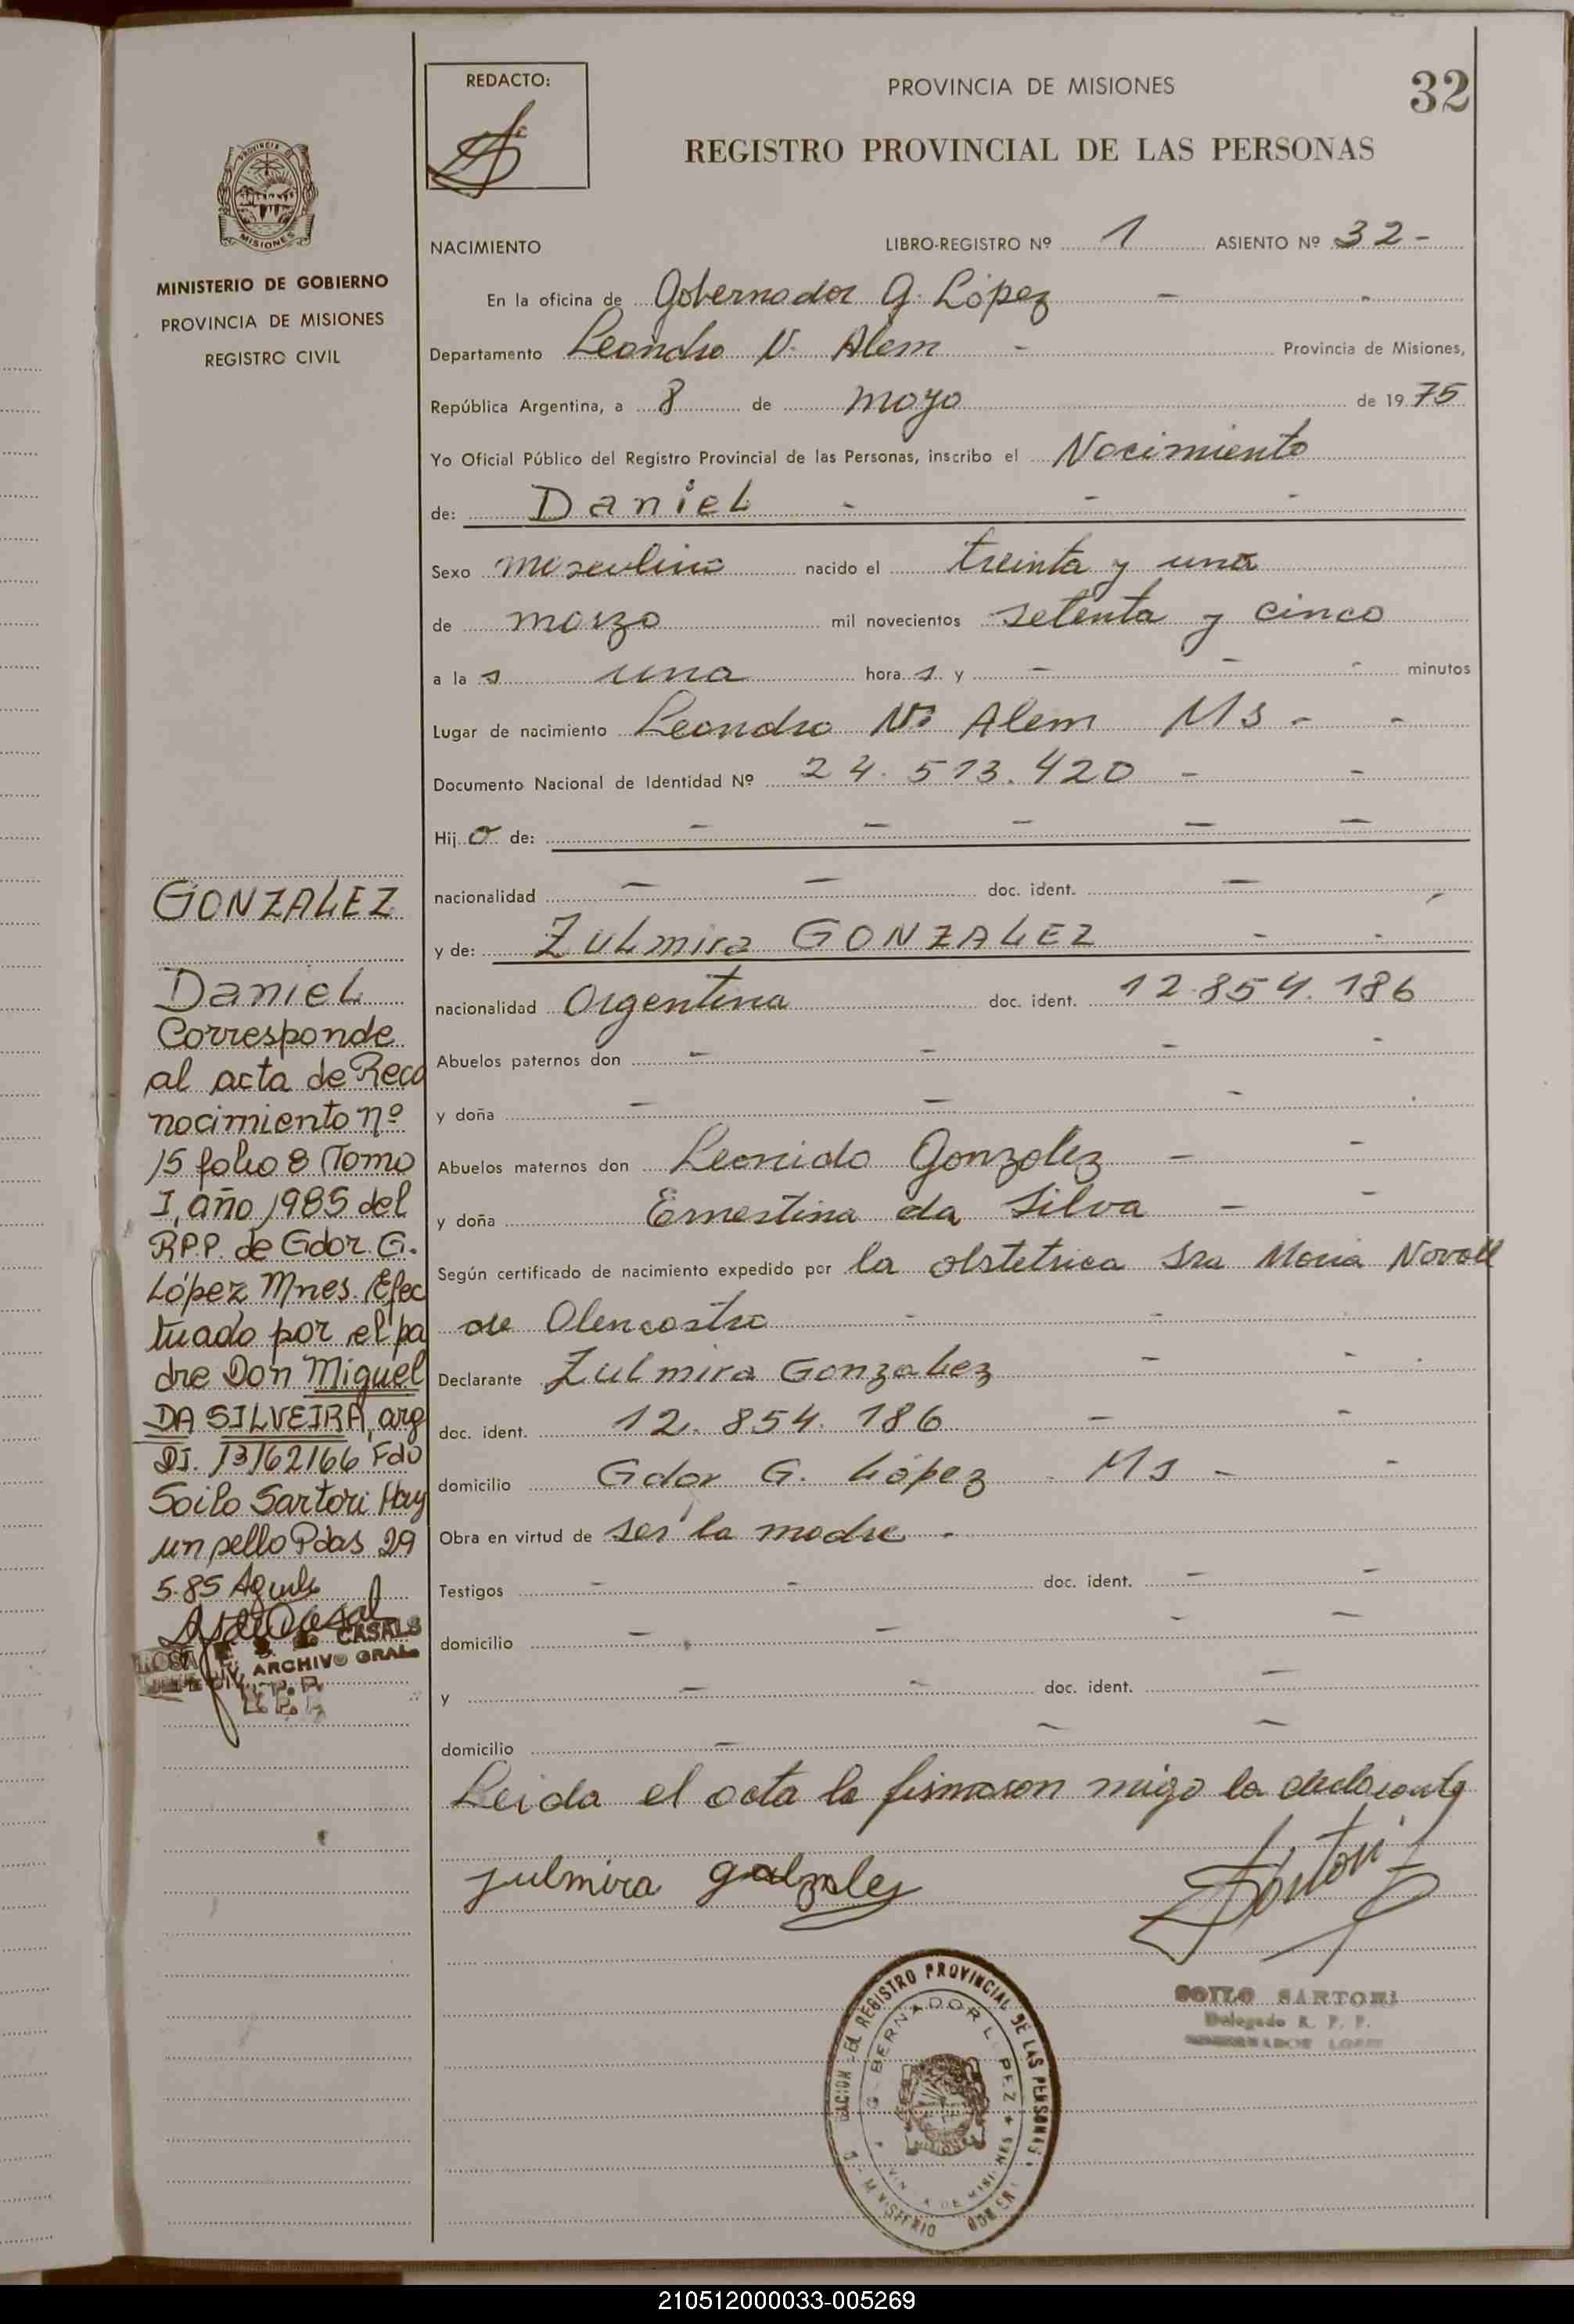 REDACTO:
PROVINCIA DE MISIONES
32
REGISTRO PROVINCIAL DE LAS PERSONAS
PROVINCIA D
MISIONES
MINISTERIO DE GOBIERNO
PROVINCIA DE MISIONES
REGISTRO CIVIL
NACIMIENTO LIBRO-REGISTRO Nº 1 ASIENTO Nº 32 -
En la oficina de Gobernador G. López - -
Departamento Leandro N. Alem - Provincia de Misiones,
República Argentina, a 8 de mayo de 1975
Yo Oficial Público del Registro Provincial de las Personas, inscribo el Nacimiento
de: Daniel - - -
Sexo masculino nacido el treinta y uno
de marzo mil novecientos setenta y cinco
a la s una hora s y - - - minutos
Lugar de nacimiento Leandro N. Alem Ms - -
Documento Nacional de Identidad Nº 24.513.420 - -
Hij o de: - - - - -
nacionalidad - - doc. ident. -
y de: Zulmira GONZALEZ - -
nacionalidad Argentina doc. ident. 12.854.186
Abuelos paternos don - - - -
y doña - - -
Abuelos maternos don Leonido Gonzalez - -
y doña Ernestina da Silva - -
Según certificado de nacimiento expedido por la obstetrica Sra Maria
de Olencastro - - -
Declarante Zulmira Gonzalez - -
doc. ident. 12.854.186 - -
domicilio Gdor G. López Ms - -
Obra en virtud de ser la madre -
Testigos - - doc. ident. - -
domicilio - - - -
y - - doc. ident. -
domicilio - - -
Leida el acta la firmaron migo la declarante
GONZALEZ
Daniel
Corresponde
al acta de Reco
nocimiento nº
15 folio 8 Tomo
I, año 1985 del
R.P.P. de Gdor. G.
López Mnes. Efec
tuado por el pa
dre Don Miguel
DA SILVEIRA, arg
DI. 13162166 Fdo
Soilo Sartori Hay
un sello Pdas 29
5-85
ROSA CASALS
ARCHIVO GRAL.
R.P.P.
julmira
SOILO SARTORI
Delegado R. P. P.
GOBERNADOR LOPEZ
REGISTRO PROVINCIAL DE LAS PERSONAS